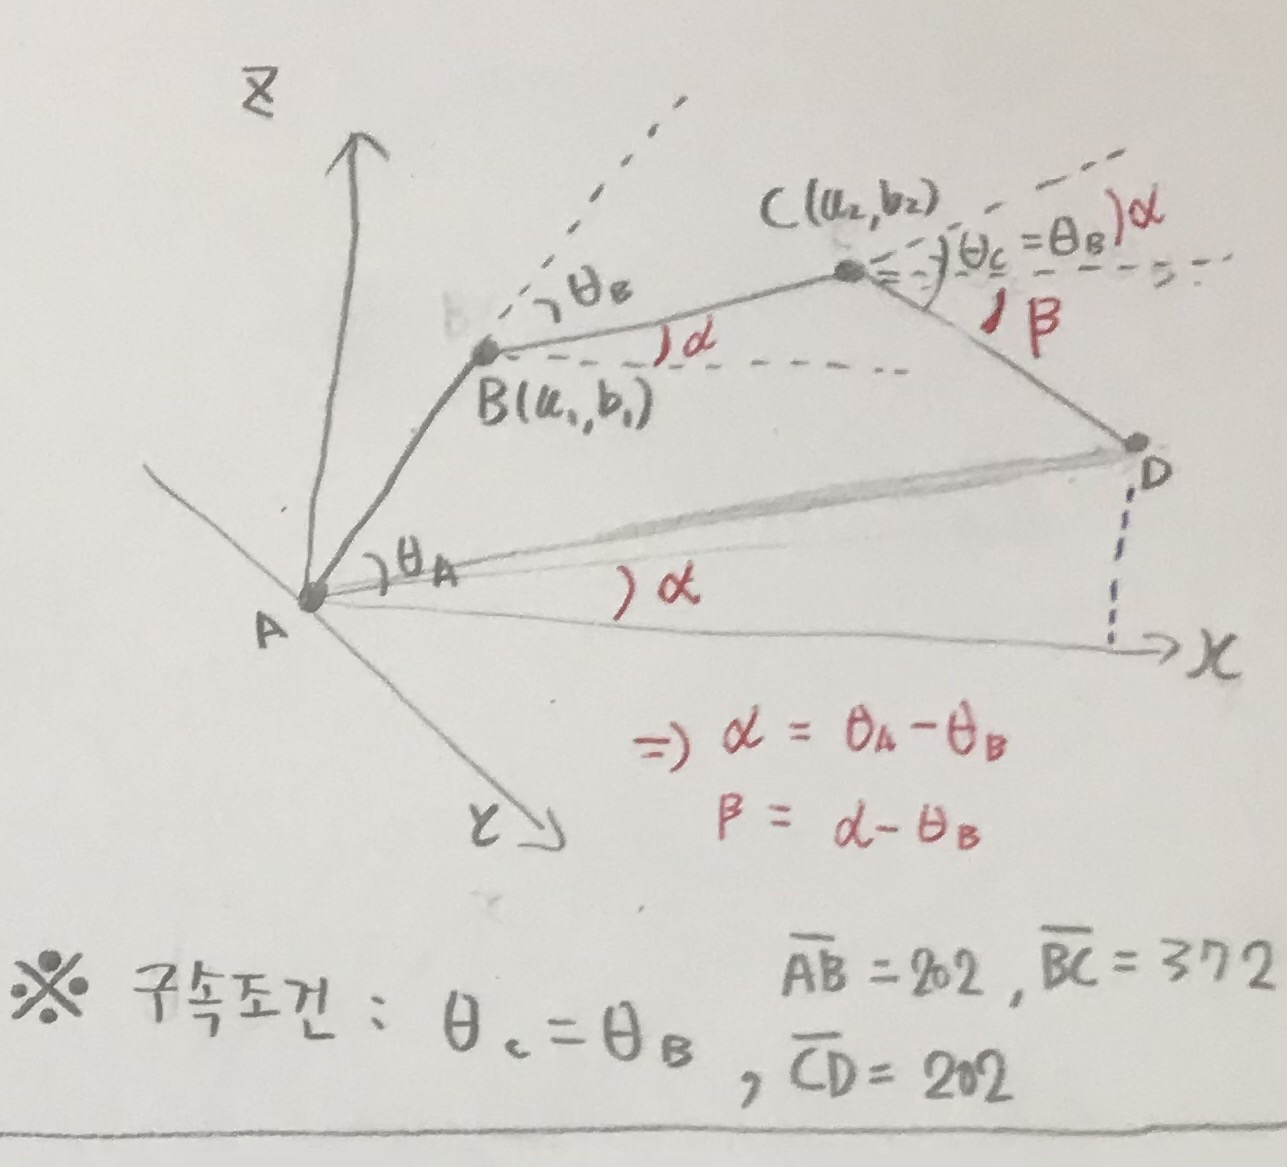 Z
C(a₂,b₂)
θc = θB )α
θB
α
β
B(a₁,b₁)
D
θA
α
A
X
Y
⇒ α = θA - θB
β = α - θB
※ 구속조건 : θc = θB , AB = 202 , BC = 372
CD = 202